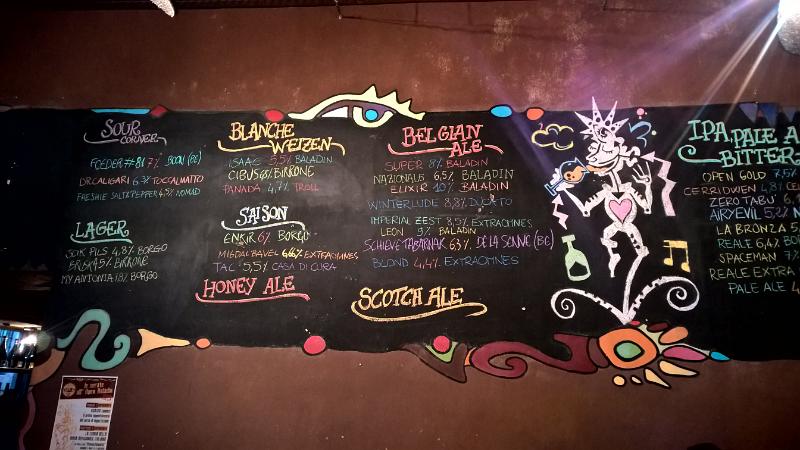 SOUR
CORNER
FOEDER #81 7% BOON (BE)
DR.CALIGARI 6,3% TOCCALMATTO
FRESHIE SALT&PEPPER 4,3% NOMAD
LAGER
5DIK PILS 4,8% BORGO
BRISKA 5% BIRRONE
MY ANTONIA 7,5% BORGO
BLANCHE
WEIZEN
ISAAC 5,5% BALADIN
CIBUS 5% BIRRONE
PANADA 4,7% TROLL
SAISON
ENKIR 6% BORGO
MIGDAL BAVEL 6,66% EXTRAOMNES
TAC 5,5% CASA DI CURA
HONEY ALE
BELGIAN
ALE
SUPER 8% BALADIN
NAZIONALE 6,5% BALADIN
ELIXIR 10% BALADIN
WINTERLUDE 8,8% DUCATO
IMPERIAL ZEST 8,5% EXTRAOMNES
LEON 9% BALADIN
SCHIEVE TABARNAK 6,3% DE LA SENNE (BE)
BLOND 4,4% EXTRAOMNES
SCOTCH ALE
IPA, PALE A
BITTER
OPEN GOLD 7,5%
CERRIDWEN 4,8% CE
ZERO TABÙ 6,
AIRYEVIL 5,2% N
LA BRONZA 5
REALE 6,4% BO
SPACEMAN 7%
REALE EXTRA
PALE ALE 4